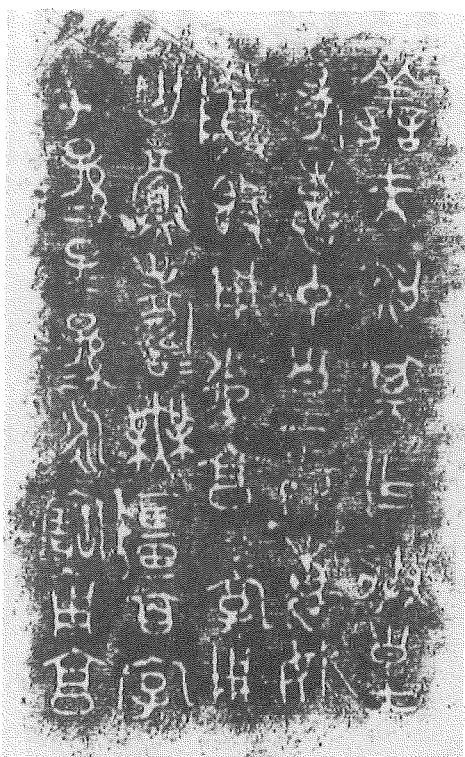 善夫梁其乍朕皇
考惠中皇母惠妀
尊簋用追享孝用
匄眉壽無疆百字
千孫子=孫=永寶用享